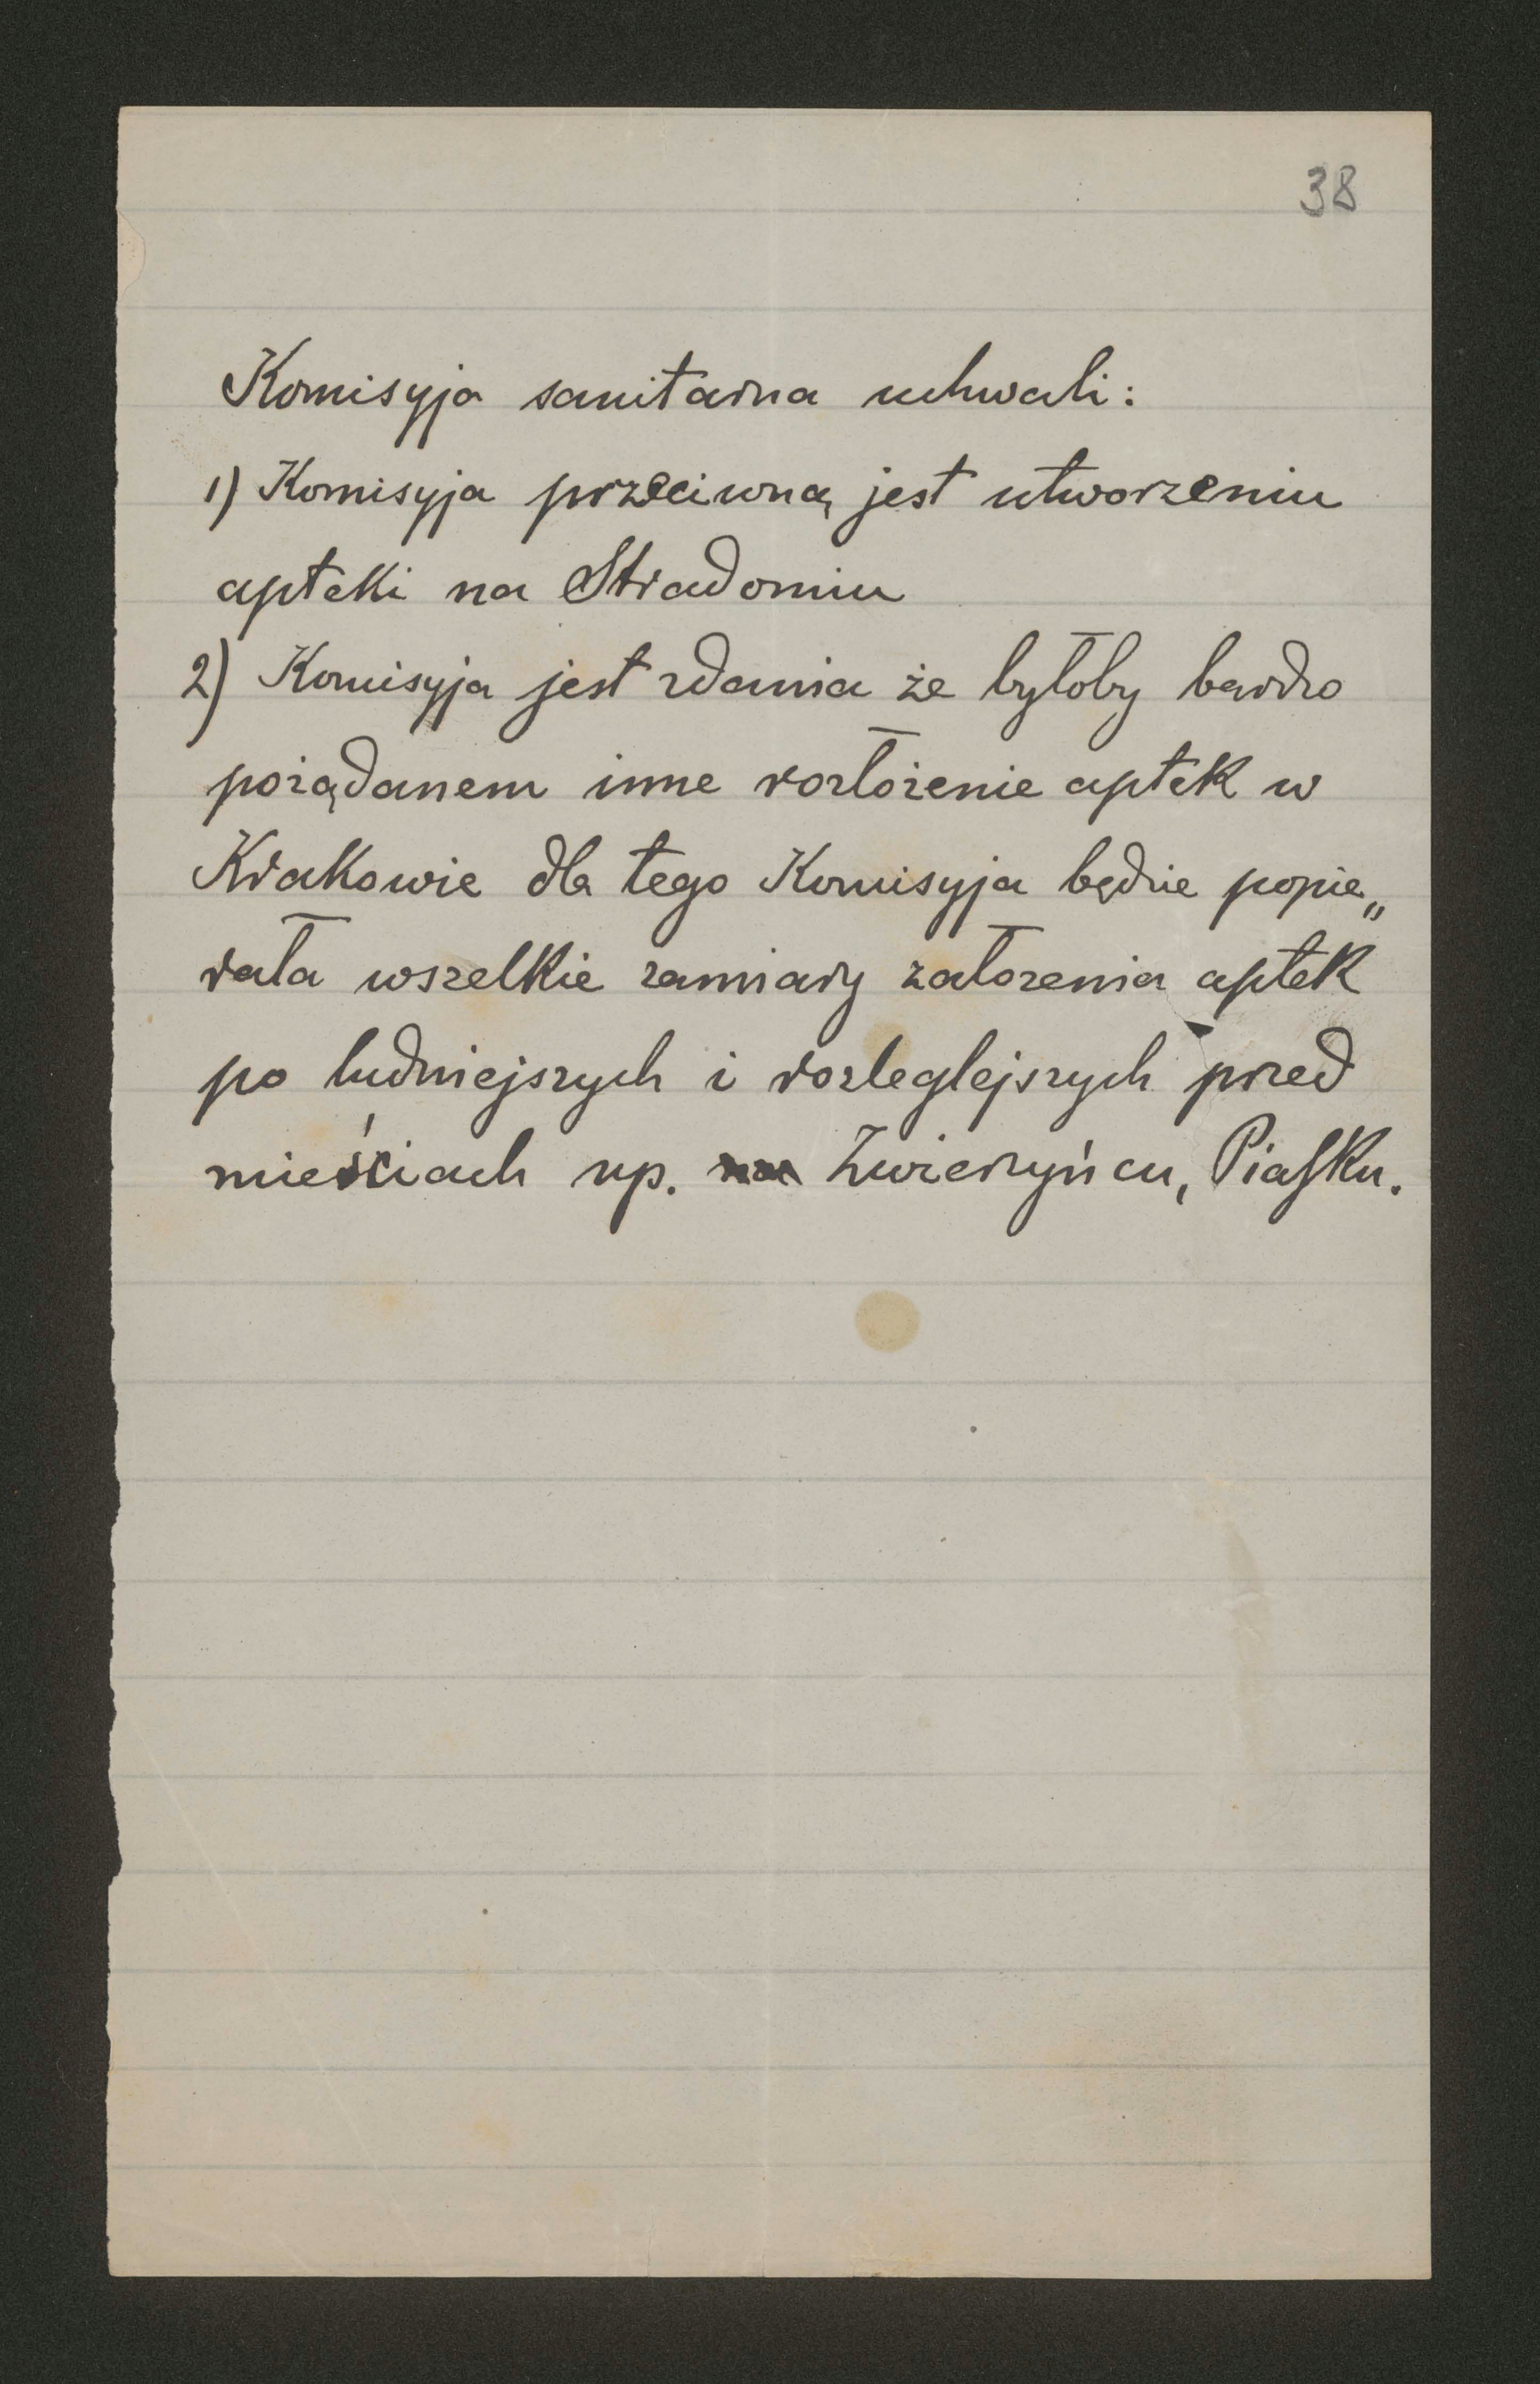 38
Komisyja sanitarna uchwali:
1) Komisyja przeciwną jest utworzeniu
apteki na Stradomiu
2) Komisyja jest zdania że byłoby bardzo
pożądanem inne rozłożenie aptek w
Krakowie dla tego Komisyja będzie popie„
rała wszelkie zamiary założenia aptek
po ludniejszych i rozleglejszych przed
mieściach np. Zwierzyńcu, Piasku.